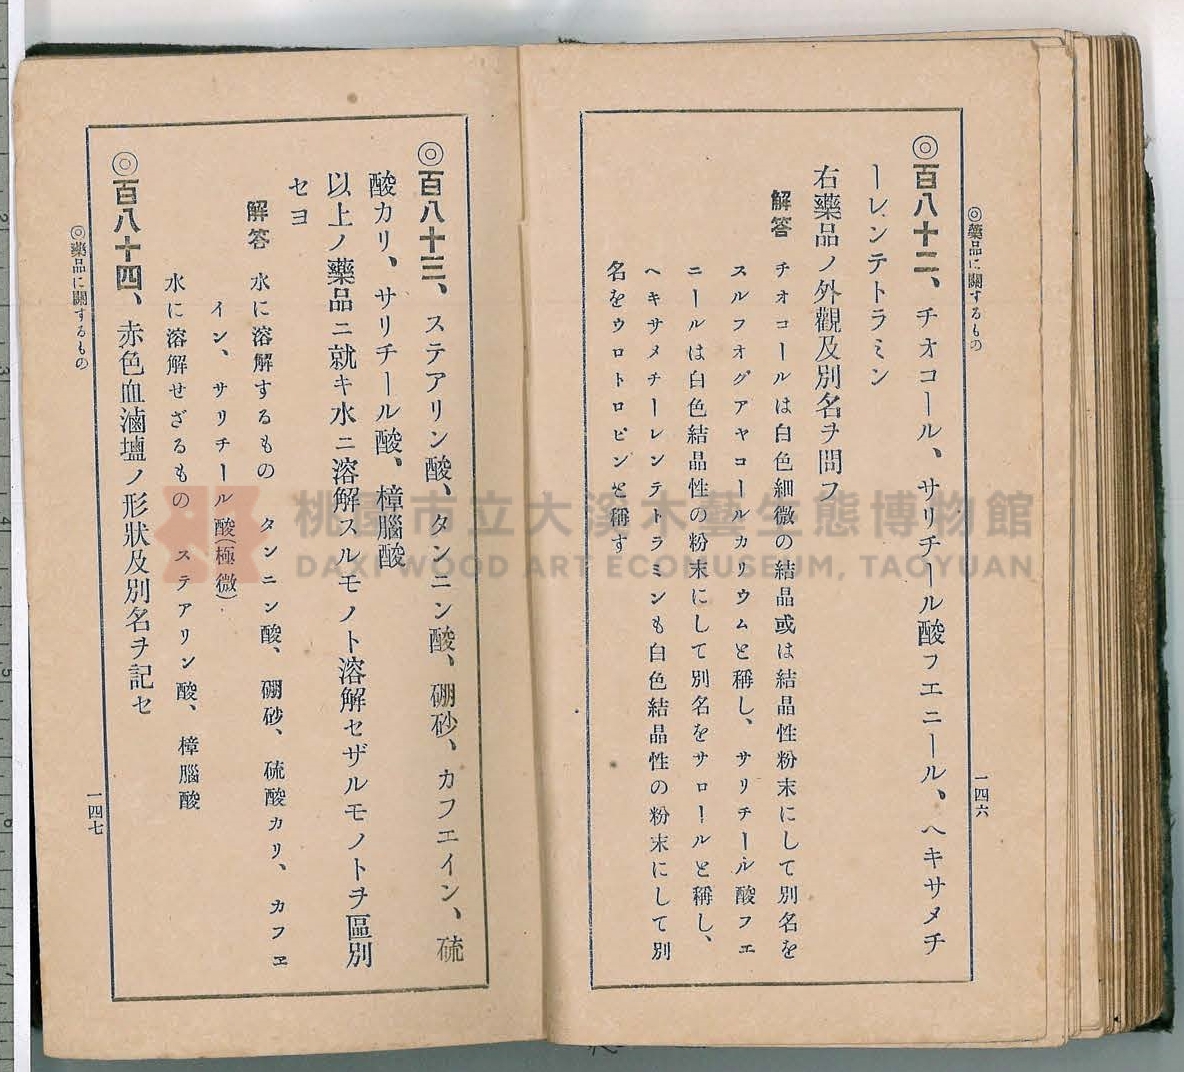 ◎藥品に關するもの
一四六
◎百八十二、チオコール、サリチール酸フエニール、ヘキサメチ
ーレンテトラミン
右藥品ノ外觀及別名ヲ問フ
解答 チオコールは白色細微の結晶或は結晶性粉末にして別名を
スルフオグアヤコールカリウムと稱し、サリチール酸フエ
ニールは白色結晶性の粉末にして別名をサロールと稱し、
ヘキサメチーレンテトラミンも白色結晶性の粉末にして別
名をウロトロピンと稱す
◎百八十三、ステアリン酸、タンニン酸、硼砂、カフエイン、硫
酸カリ、サリチール酸、樟腦酸
以上ノ藥品ニ就キ水ニ溶解スルモノト溶解セザルモノトヲ區別
セヨ
解答 水に溶解するもの タンニン酸、硼砂、硫酸カリ、カフエ
イン、サリチール酸(極微)
水に溶解せざるもの ステアリン酸、樟腦酸
◎百八十四、赤色血滷塩ノ形狀及別名ヲ記セ
◎藥品に關するもの
一四七
桃園市立大溪木藝生態博物館
DAXI WOOD ART ECOMUSEUM, TAOYUAN